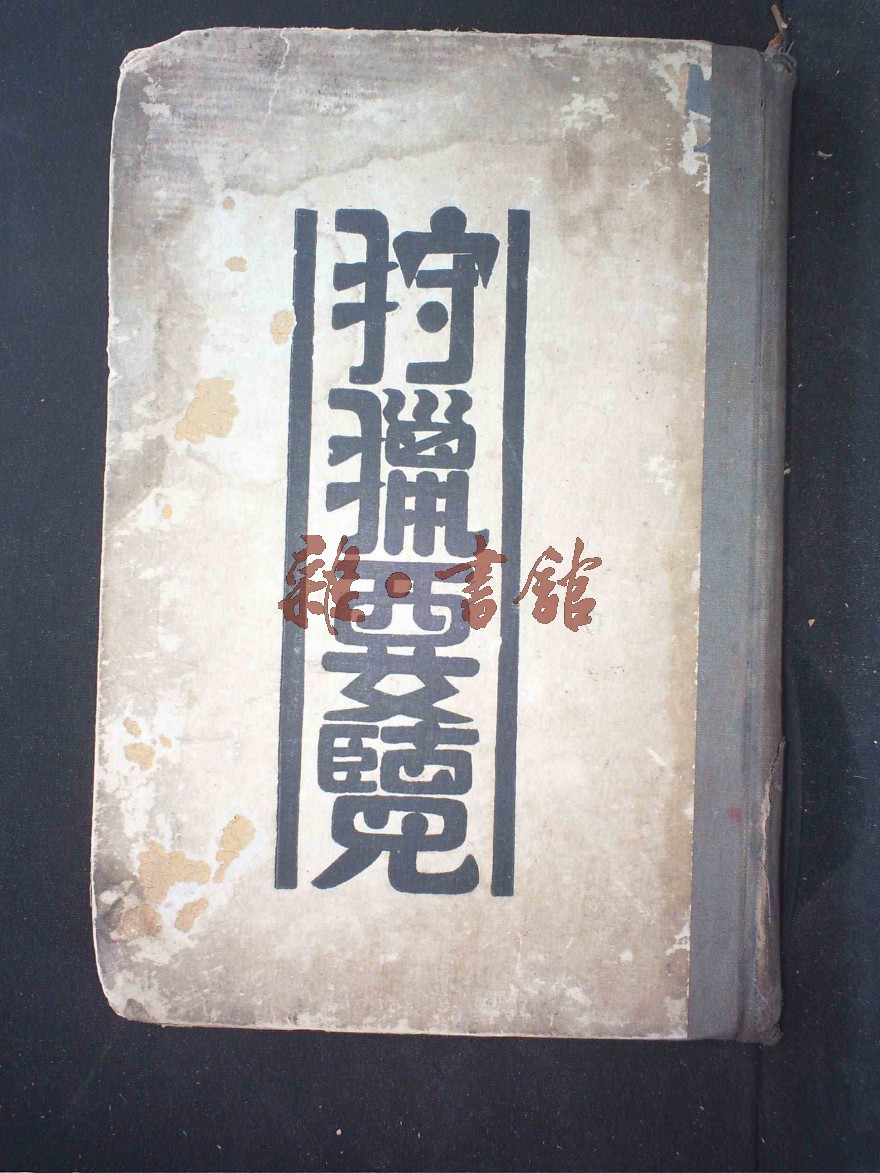 狩獵要覽
雜·書館